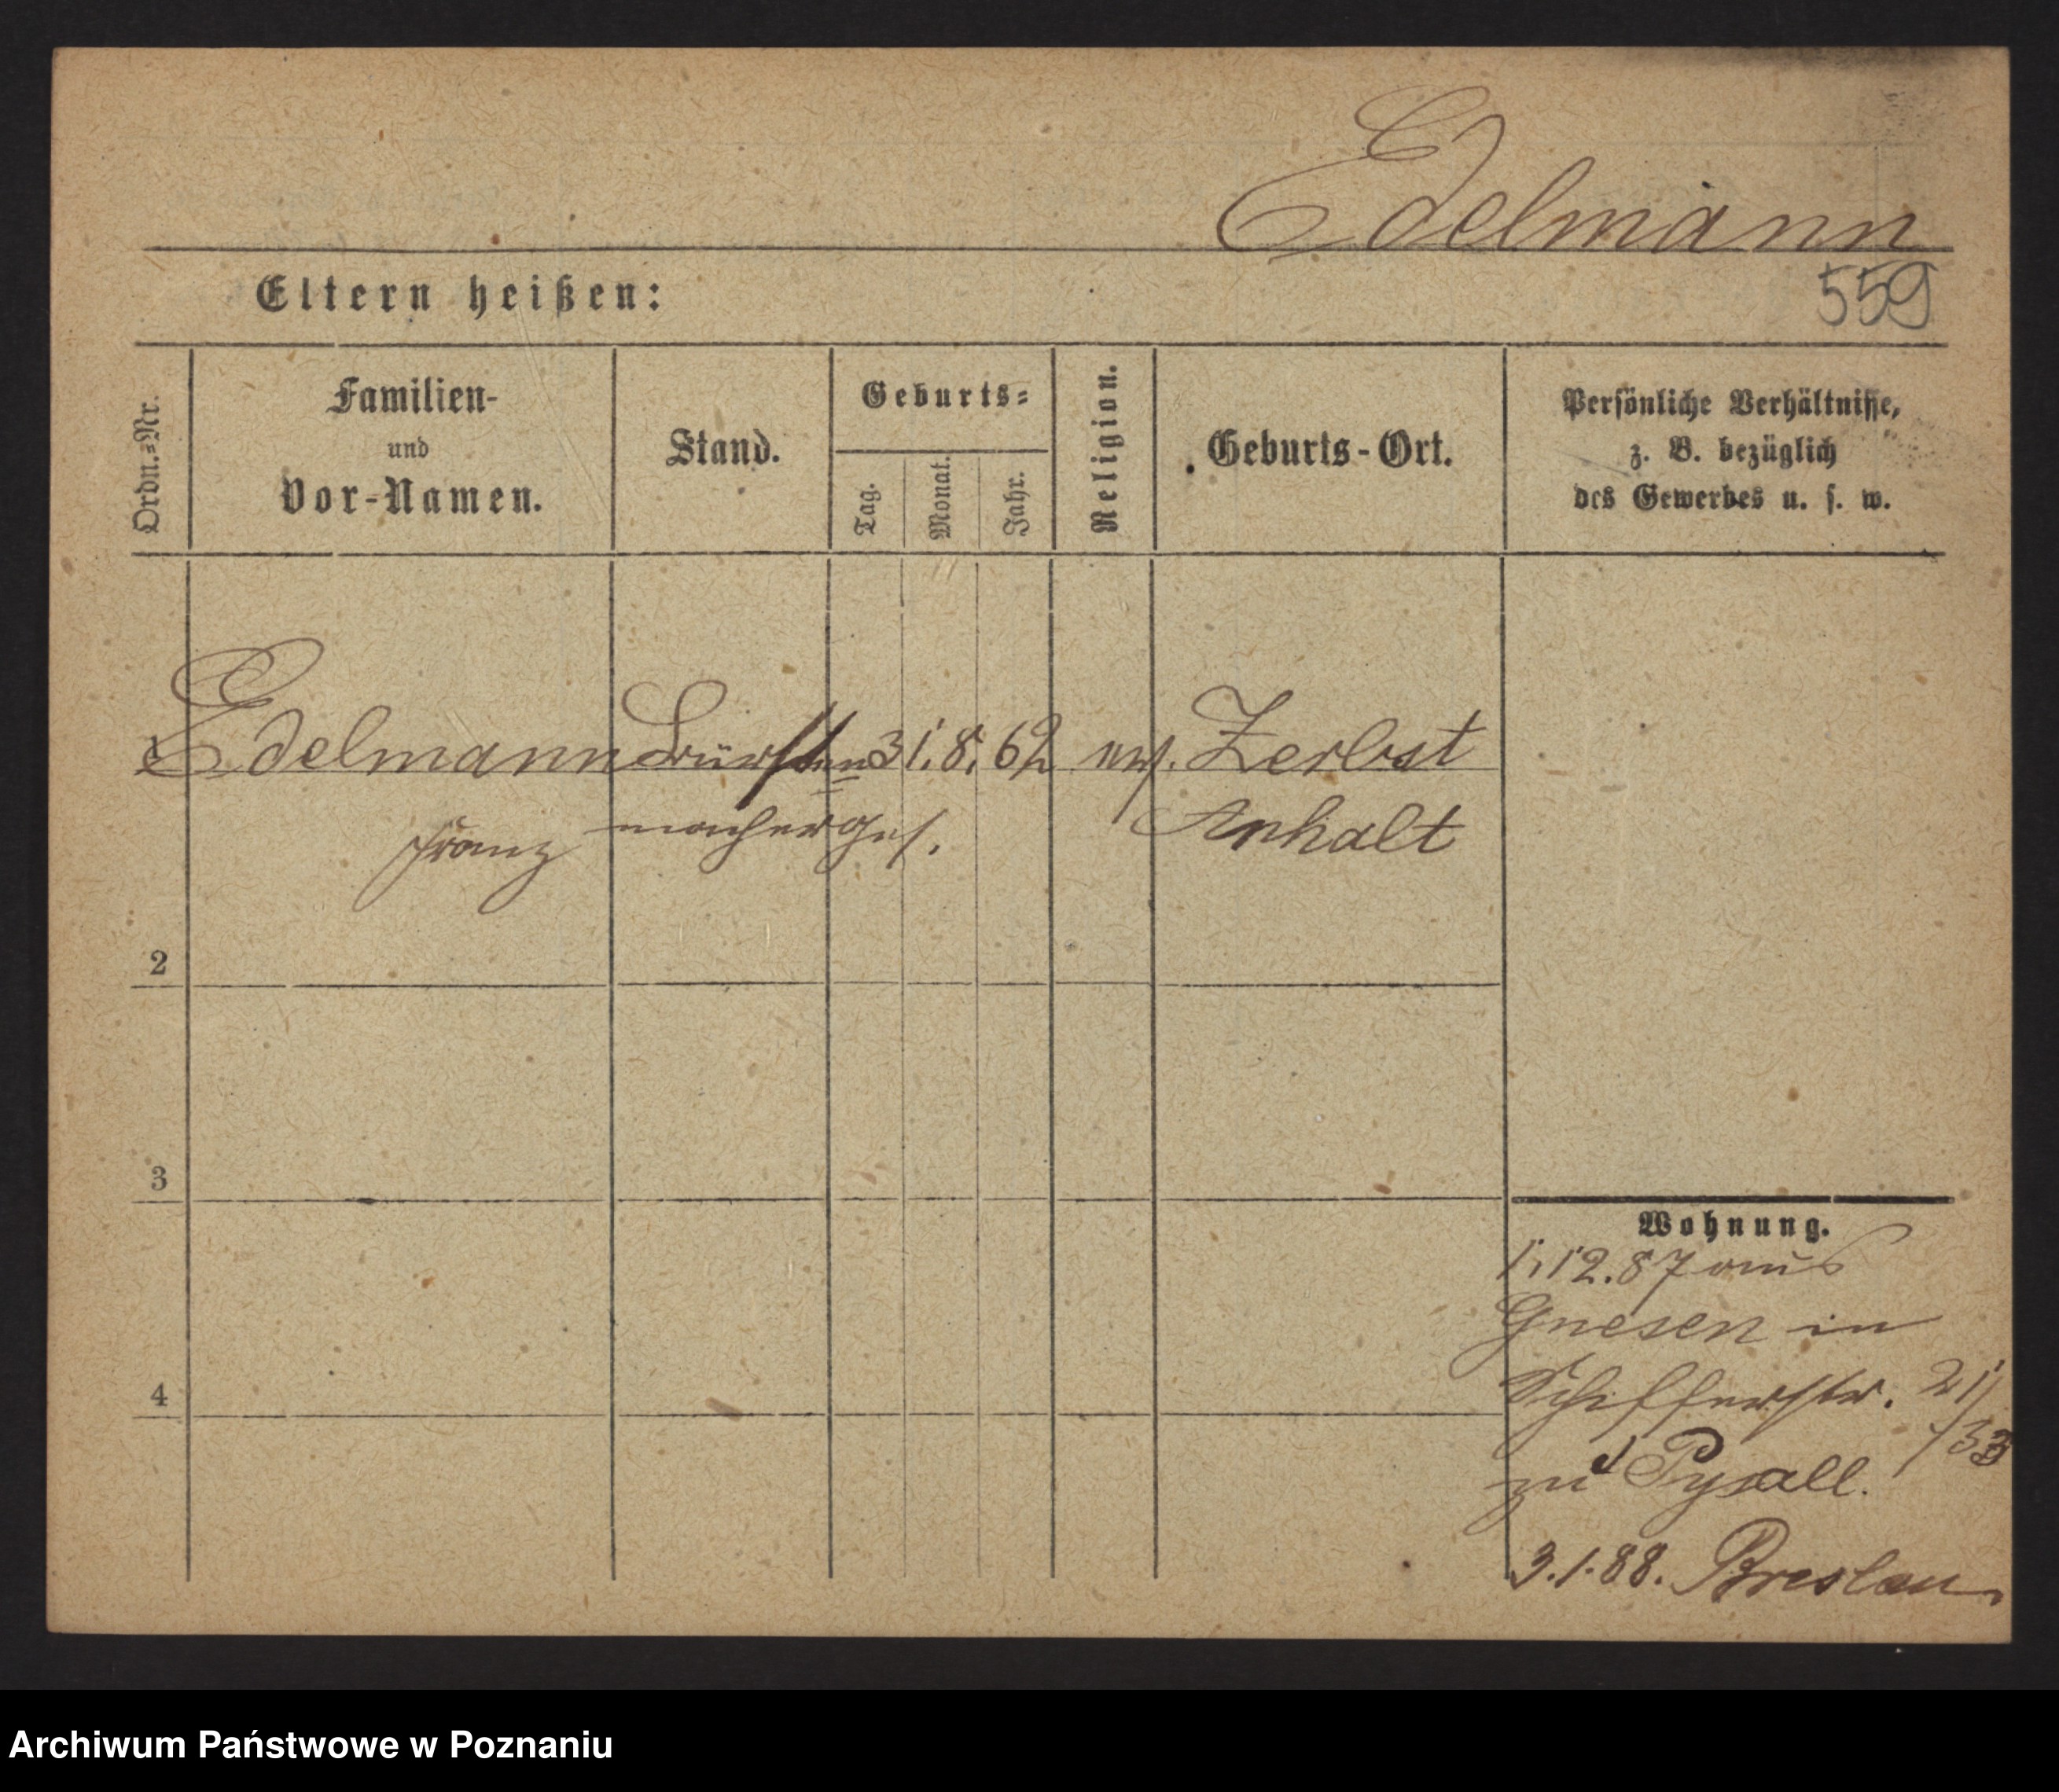 Edelmann
Eltern heißen:
559
Ordn.=Nr.
Familien-
und
Vor-Namen.
Stand.
Geburts=
Tag.
Monat.
Jahr.
Religion.
Geburts-Ort.
Persönliche Verhältnisse,
z. B. bezüglich
des Gewerbes u. s. w.
1 Edelmann Bürsten 31.8.62 ev. Zerbst
Franz macherges. Anhalt
2
3
4
Wohnung.
1.12.87 aus
Gnesen in
Schifferstr. 21
/33
zu Pysall.
3.1.88. Breslau.
Archiwum Państwowe w Poznaniu